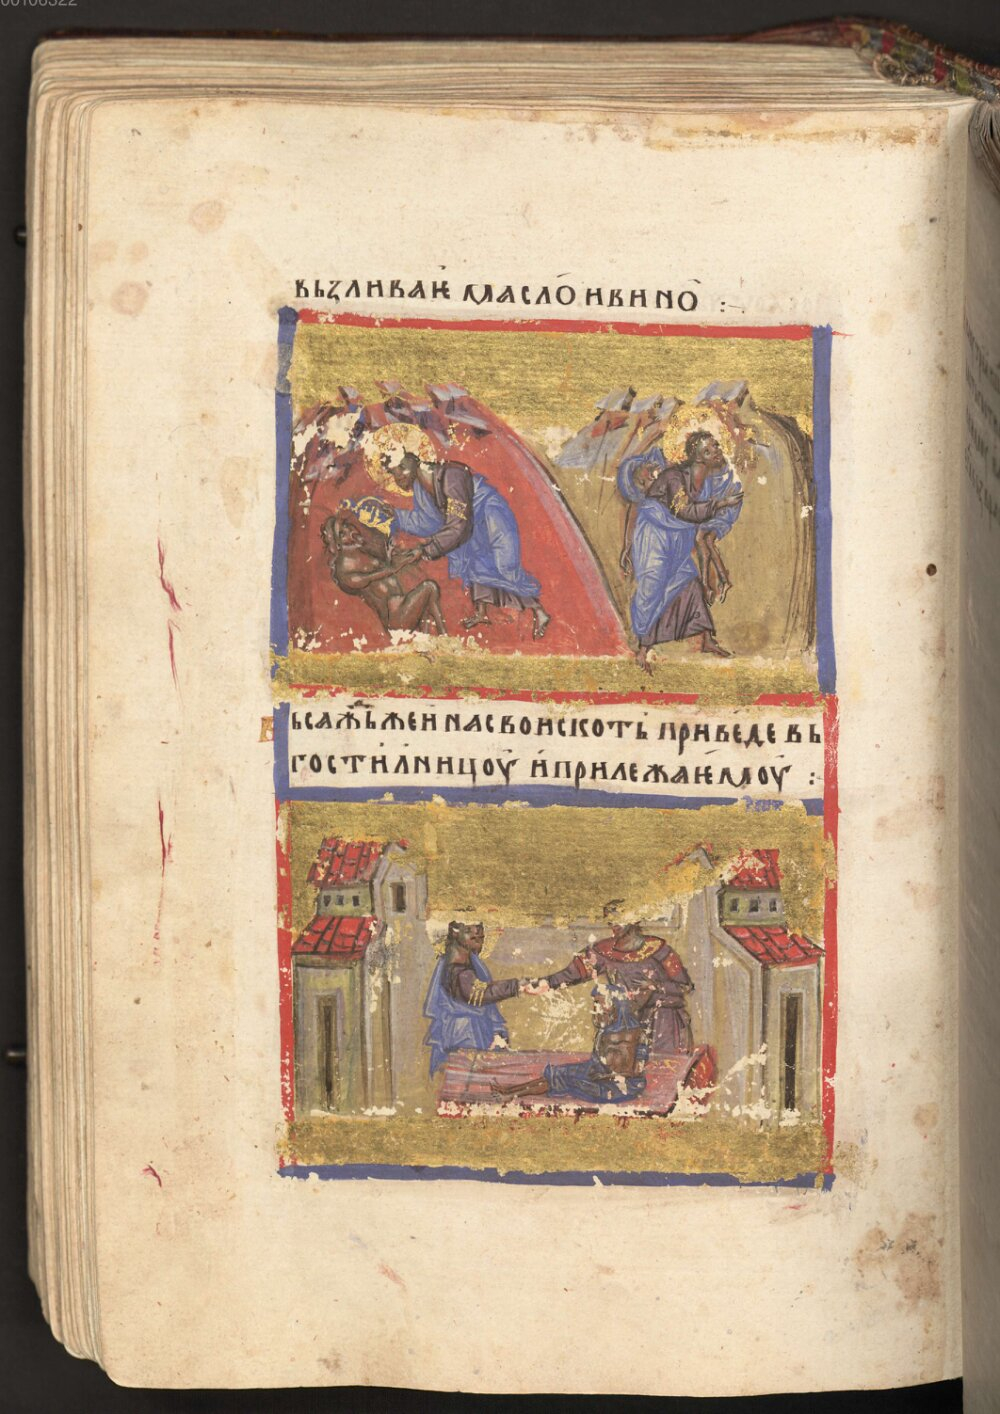 вьꙁливаѥ масло и вино :
Вьсажьже и на свои скоть приведе вь
гостилницоу и прилежаѥмоу :